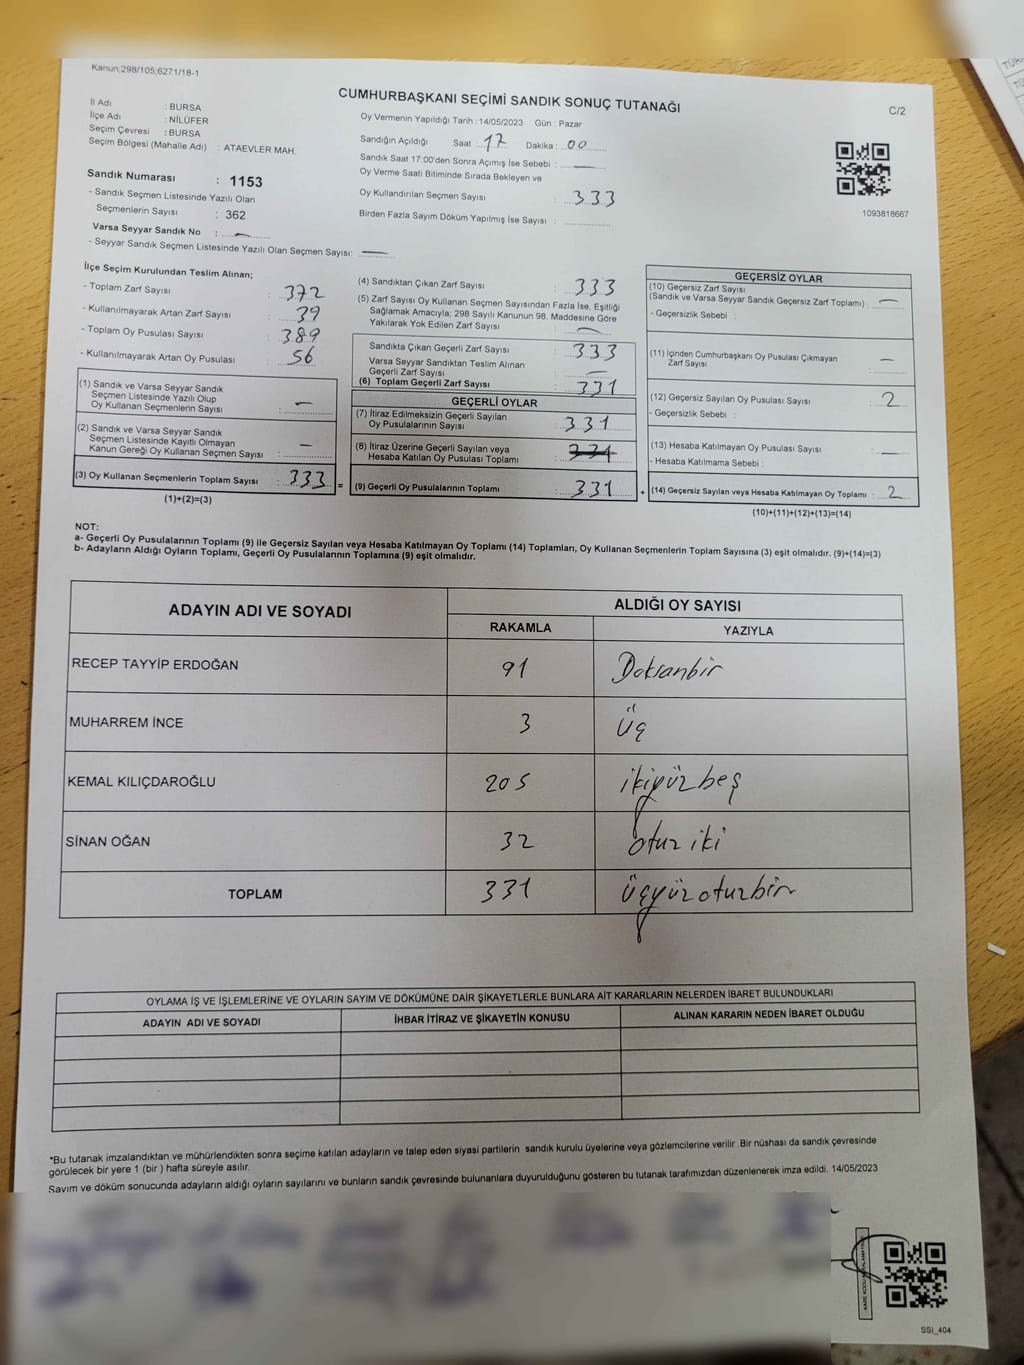 Kanun:298/105;6271/18-1
CUMHURBAŞKANI SEÇİMİ SANDIK SONUÇ TUTANAĞI
C/2
İl Adı : BURSA
İlçe Adı : NİLÜFER
Seçim Çevresi : BURSA
Seçim Bölgesi (Mahalle Adı) : ATAEVLER MAH.
Sandık Numarası : 1153
- Sandık Seçmen Listesinde Yazılı Olan
Seçmenlerin Sayısı : 362
Varsa Seyyar Sandık No : —
- Seyyar Sandık Seçmen Listesinde Yazılı Olan Seçmen Sayısı: —
Oy Vermenin Yapıldığı Tarih : 14/05/2023 Gün : Pazar
Sandığın Açıldığı Saat : 17 Dakika : 00
Sandık Saat 17:00'den Sonra Açımış İse Sebebi : —
Oy Verme Saati Bitiminde Sırada Bekleyen ve
Oy Kullandırılan Seçmen Sayısı : 333
Birden Fazla Sayım Döküm Yapılmış İse Sayısı :
1093818667
İlçe Seçim Kurulundan Teslim Alınan;
- Toplam Zarf Sayısı : 372
- Kullanılmayarak Artan Zarf Sayısı : 39
- Toplam Oy Pusulası Sayısı : 389
- Kullanılmayarak Artan Oy Pusulası : 56
(1) Sandık ve Varsa Seyyar Sandık
Seçmen Listesinde Yazılı Olup
Oy Kullanan Seçmenlerin Sayısı : —
(2) Sandık ve Varsa Seyyar Sandık
Seçmen Listesinde Kayıtlı Olmayan
Kanun Gereği Oy Kullanan Seçmen Sayısı : —
(3) Oy Kullanan Seçmenlerin Toplam Sayısı : 333 =
(1)+(2)=(3)
(4) Sandıktan Çıkan Zarf Sayısı : 333
(5) Zarf Sayısı Oy Kullanan Seçmen Sayısından Fazla İse, Eşitliği
Sağlamak Amacıyla; 298 Sayılı Kanunun 98. Maddesine Göre
Yakılarak Yok Edilen Zarf Sayısı : —
Sandıkta Çıkan Geçerli Zarf Sayısı : 333
Varsa Seyyar Sandıktan Teslim Alınan
Geçerli Zarf Sayısı : —
(6) Toplam Geçerli Zarf Sayısı : 331
GEÇERLİ OYLAR
(7) İtiraz Edilmeksizin Geçerli Sayılan
Oy Pusulalarının Sayısı : 331
(8) İtiraz Üzerine Geçerli Sayılan veya
Hesaba Katılan Oy Pusulası Toplamı : 331
(9) Geçerli Oy Pusulalarının Toplamı : 331 +
GEÇERSİZ OYLAR
(10) Geçersiz Zarf Sayısı
(Sandık ve Varsa Seyyar Sandık Geçersiz Zarf Toplamı) : —
- Geçersizlik Sebebi :
(11) İçinden Cumhurbaşkanı Oy Pusulası Çıkmayan
Zarf Sayısı : —
(12) Geçersiz Sayılan Oy Pusulası Sayısı : 2
- Geçersizlik Sebebi :
(13) Hesaba Katılmayan Oy Pusulası Sayısı : —
- Hesaba Katılmama Sebebi :
(14) Geçersiz Sayılan veya Hesaba Katılmayan Oy Toplamı : 2
(10)+(11)+(12)+(13)=(14)
NOT:
a- Geçerli Oy Pusulalarının Toplamı (9) ile Geçersiz Sayılan veya Hesaba Katılmayan Oy Toplamı (14) Toplamları, Oy Kullanan Seçmenlerin Toplam Sayısına (3) eşit olmalıdır. (9)+(14)=(3)
b- Adayların Aldığı Oyların Toplamı, Geçerli Oy Pusulalarının Toplamına (9) eşit olmalıdır.
ADAYIN ADI VE SOYADI ALDIĞI OY SAYISI
RAKAMLA YAZIYLA
RECEP TAYYİP ERDOĞAN 91 Doksanbir
MUHARREM İNCE 3 Üç
KEMAL KILIÇDAROĞLU 205 ikiyüzbeş
SİNAN OĞAN 32 otuz iki
TOPLAM 331 üçyüzotuzbir
OYLAMA İŞ VE İŞLEMLERİNE VE OYLARIN SAYIM VE DÖKÜMÜNE DAİR ŞİKAYETLERLE BUNLARA AİT KARARLARIN NELERDEN İBARET BULUNDUKLARI
ADAYIN ADI VE SOYADI İHBAR İTİRAZ VE ŞİKAYETİN KONUSU ALINAN KARARIN NEDEN İBARET OLDUĞU
*Bu tutanak imzalandıktan ve mühürlendikten sonra seçime katılan adayların ve talep eden siyasi partilerin sandık kurulu üyelerine veya gözlemcilerine verilir .Bir nüshası da sandık çevresinde
görülecek bir yere 1 (bir ) hafta süreyle asılır.
Sayım ve döküm sonucunda adayların aldığı oyların sayılarını ve bunların sandık çevresinde bulunanlara duyurulduğunu gösteren bu tutanak tarafımızdan düzenlenerek imza edildi. 14/05/2023
SSI_404